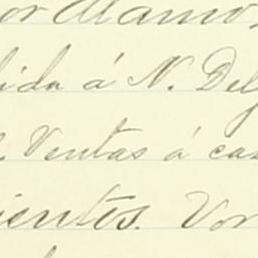 or Alamo,
ida á N. Del
Ventas á ca
ientes. Vor